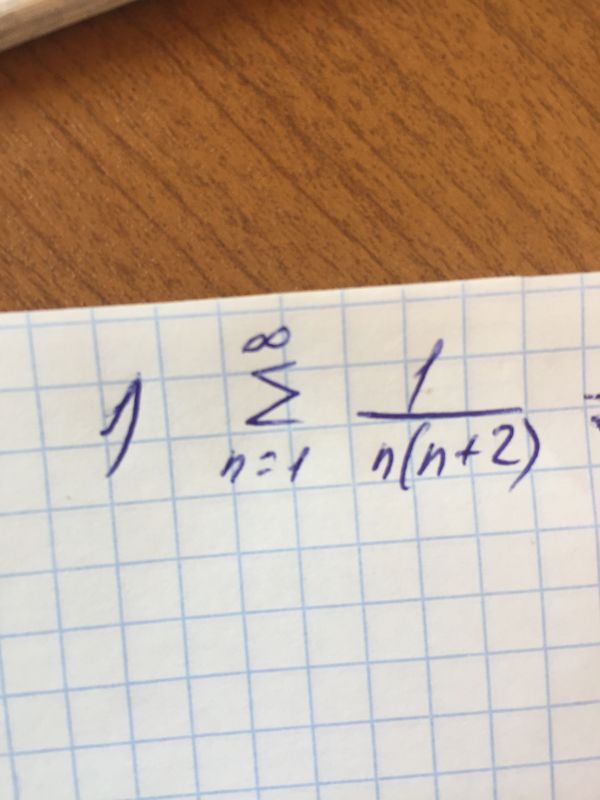 1) ∞ ∑ n=1 1/n(n+2) =